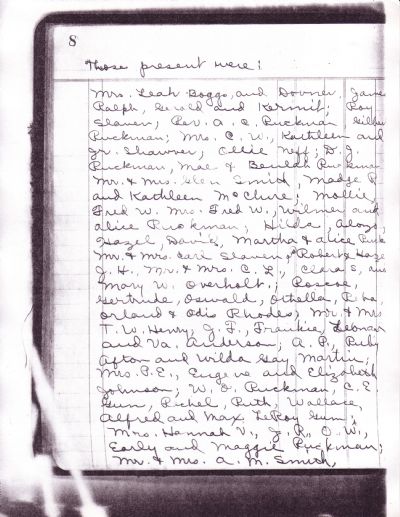 8
Those present were:
Mrs. Leah Boggs, and Downer, Jame
Ralph, Gerold and Kermit; Roy
Slaven; Rev. A. C. Ruckman Gilber
Ruckman; Mrs. C. W., Kathleen and
Jr. Shawver; Ollie Neff; D. J.
Ruckman, Mae & Beulah Ruckman
Mr. & Mrs. Glen Smith, Madge R
and Kathleen McClure; Mollie,
Fred W. Mrs. Fred W., Wilmer and
Alice Ruckman; Hilda, Alogo,
Hazel, Davis, Martha & Alice Ruck
Mr. & Mrs. Earl Slaven; Robert & Haze
J. H., Mr. & Mrs. C. L., S, and
Mary W. Overholt.; Roscoe,
Gertrude, Oswald, Othella, Reba,
Orland & Odis Rhodes; Mr. & Mrs
T. W. Henry, J. F., Frankie, Leonar
and Va. Anderson; A. P., Ruby
Afton and Wilda Gay Martin;
Mrs. P. E., Eugene and Elizabeth
Johnson; W. O. Ruckman, C. E.
Gum, Rachel, Ruth, Wallace,
Alfred and Max LeRoy Gum;
Mrs. Hannah V., J. R., O. W.,
Early and Maggie Ruckman;
Mr. & Mrs. A. M. Smith,